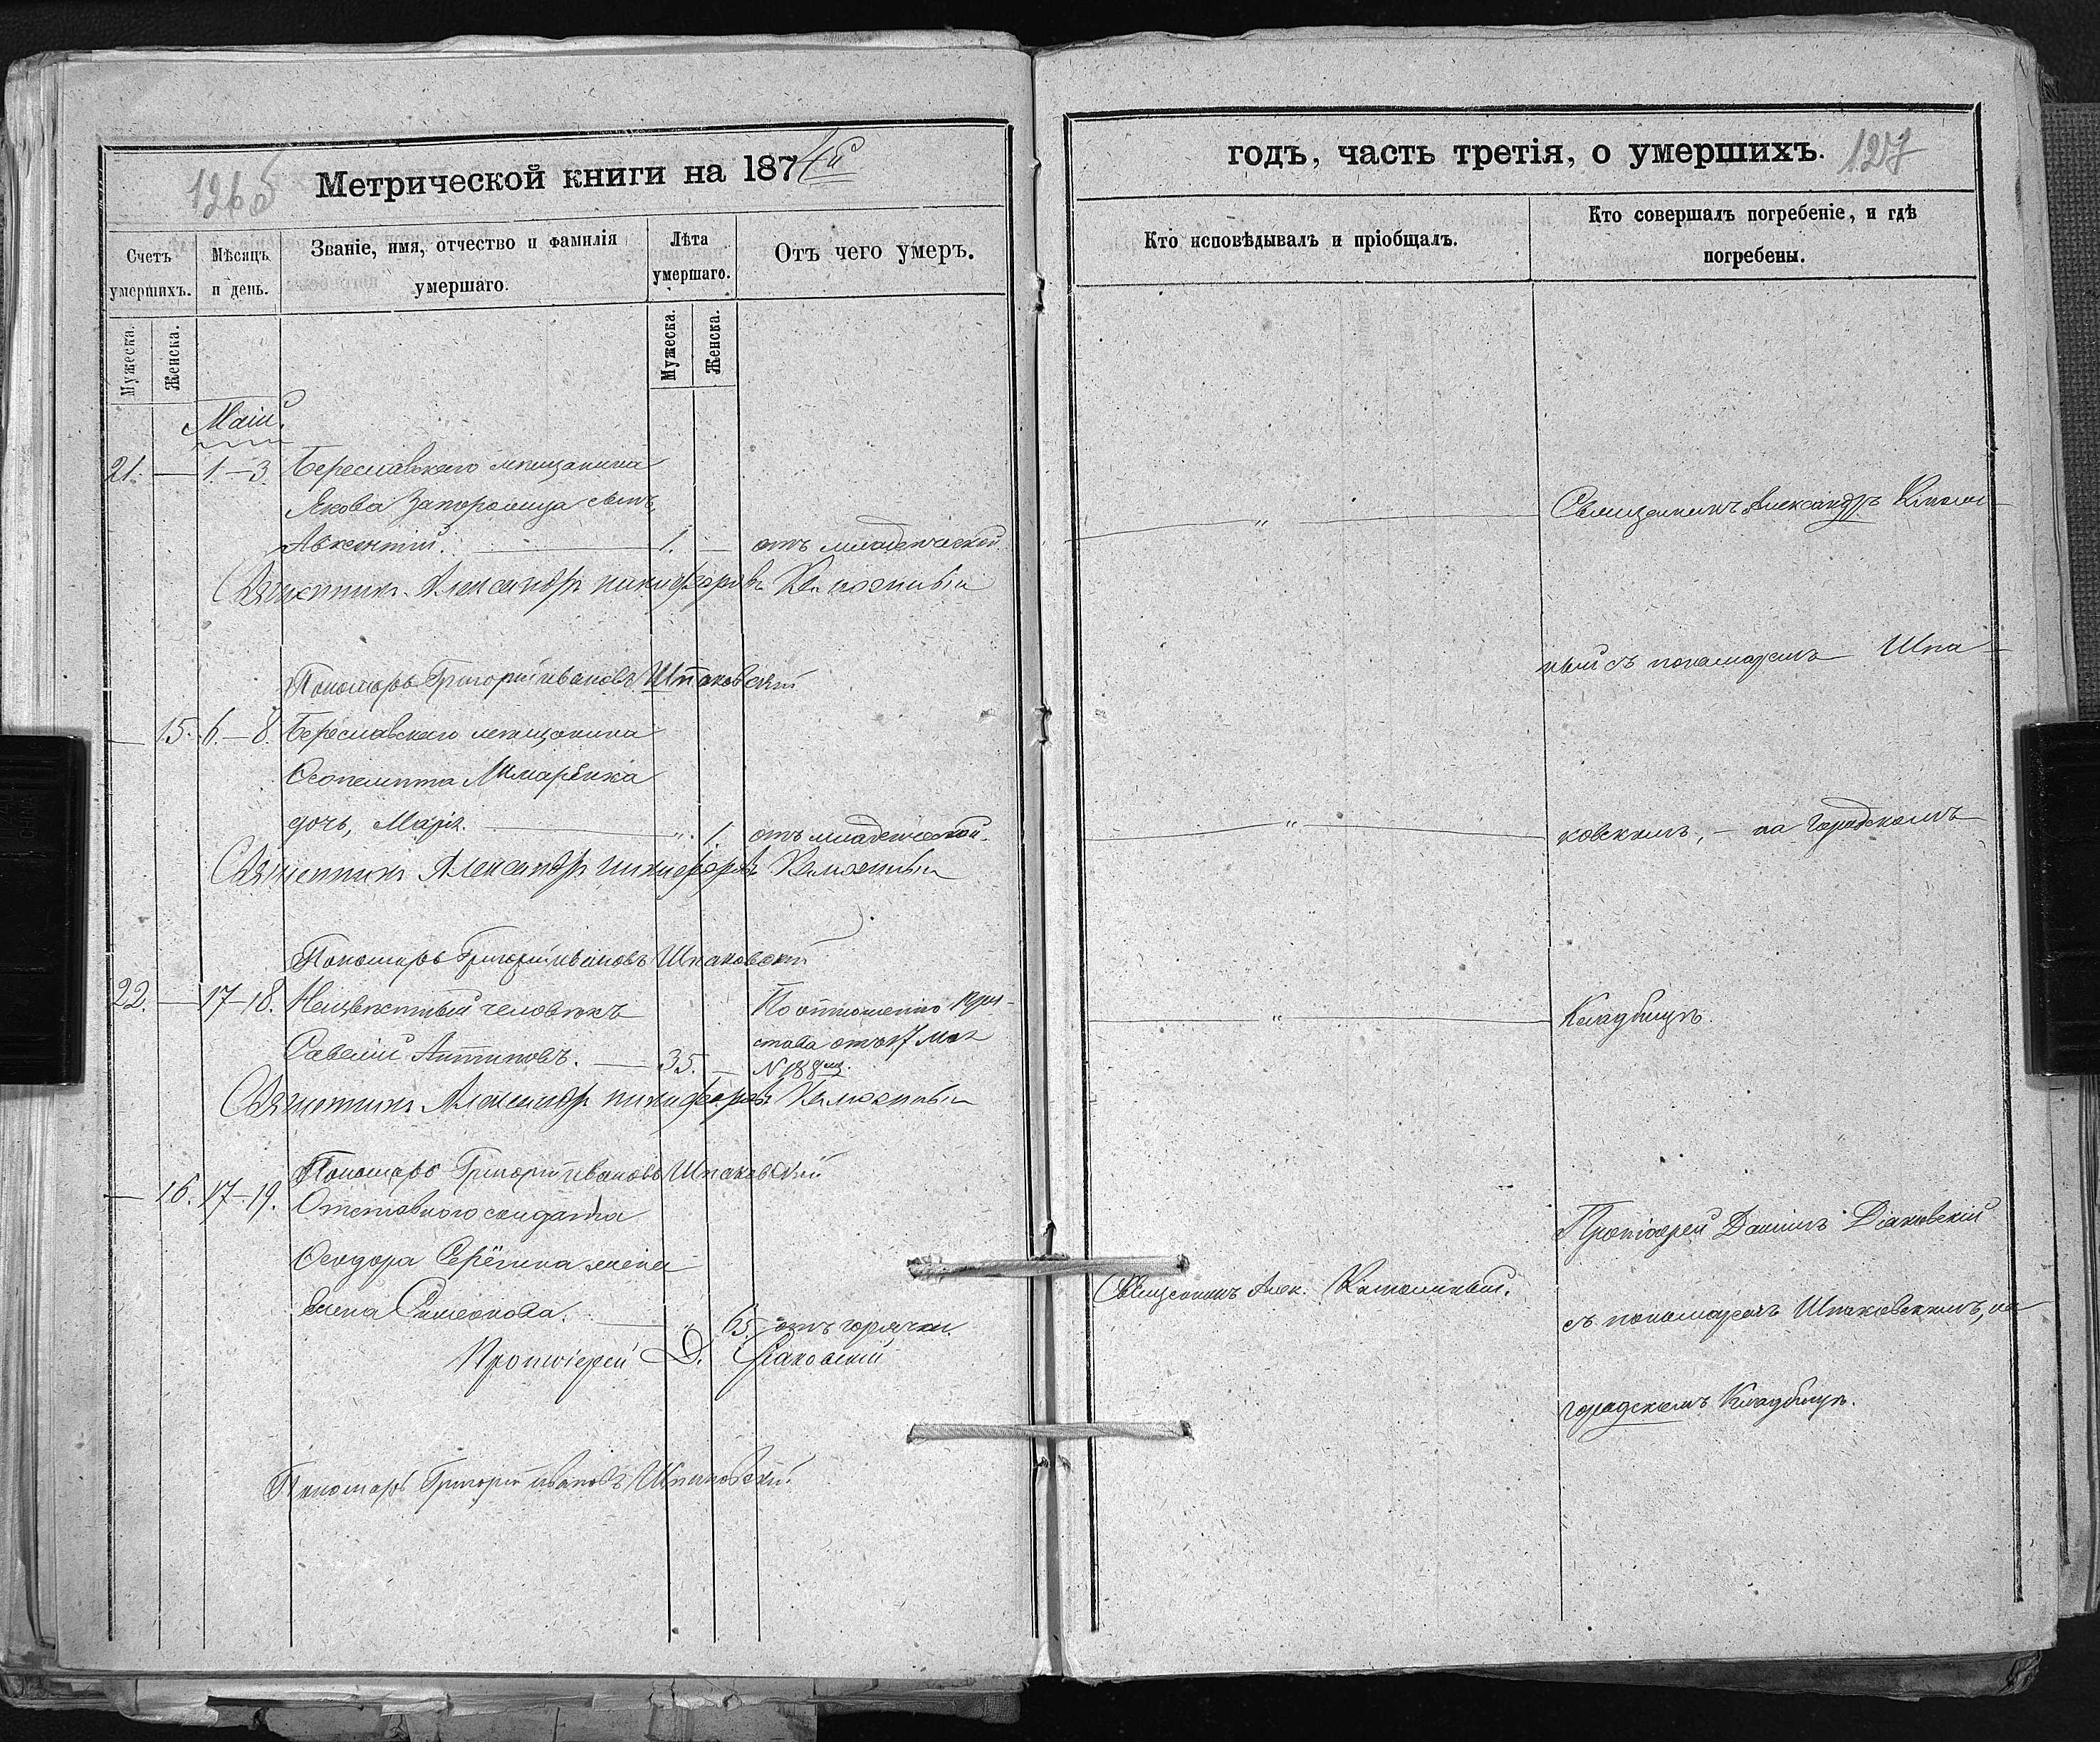 126б
Метрической книги на 1874й
Счетъ умершихъ.
Мѣсяцъ и день.
Званіе, имя, отчество и фамилія умершаго.
Лѣта умершаго.
Отъ чего умеръ.
Мужеска.
Женска.
Мужеска.
Женска.
Маій.
21. — 1.—3. Береславскаго мѣщанина
Якова Запорожца сынъ,
Авксентій. — 1. — отъ младенческой
Священникъ Александръ Никифоровъ
Пономарь Григорій Ивановъ Шпаковскій
— 15. 6.—8. Береславскаго мѣщанина
дочь, Марія. — „ 1. отъ младенческой.
Священникъ Александръ Никифоровъ
Пономарь Григорій Ивановъ Шпаковскій
22. — 17—18. Неизвѣстный человѣкъ
Савелій Антиповъ. — 35. —
По отношенію при-
става отъ 17 Мая
N 188
Священникъ Александръ Никифоровъ
Пономарь Григорій Ивановъ Шпаковскій
— 16. 17—19. Отставного солдата
Ѳеодора Серёгина жена
Елена Симеонова. — „ 65. отъ горячки.
Протоіерей Д. Діаковскій
Пономарь Григорій Ивановъ Шпаковскій.
годъ, часть третія, о умершихъ.
127
Кто исповѣдывалъ и пріобщалъ.
Кто совершалъ погребеніе, и гдѣ
погребены.
„ Священникъ Александръ
ный съ пономаремъ Шпа-
„ ковскимъ, — на Городскомъ
„ Кладбищѣ.
Протоіерей Даніилъ Діаковскій
Священникъ Алек.
съ пономаремъ Шпаковскимъ, на
городскомъ Кладбищѣ.